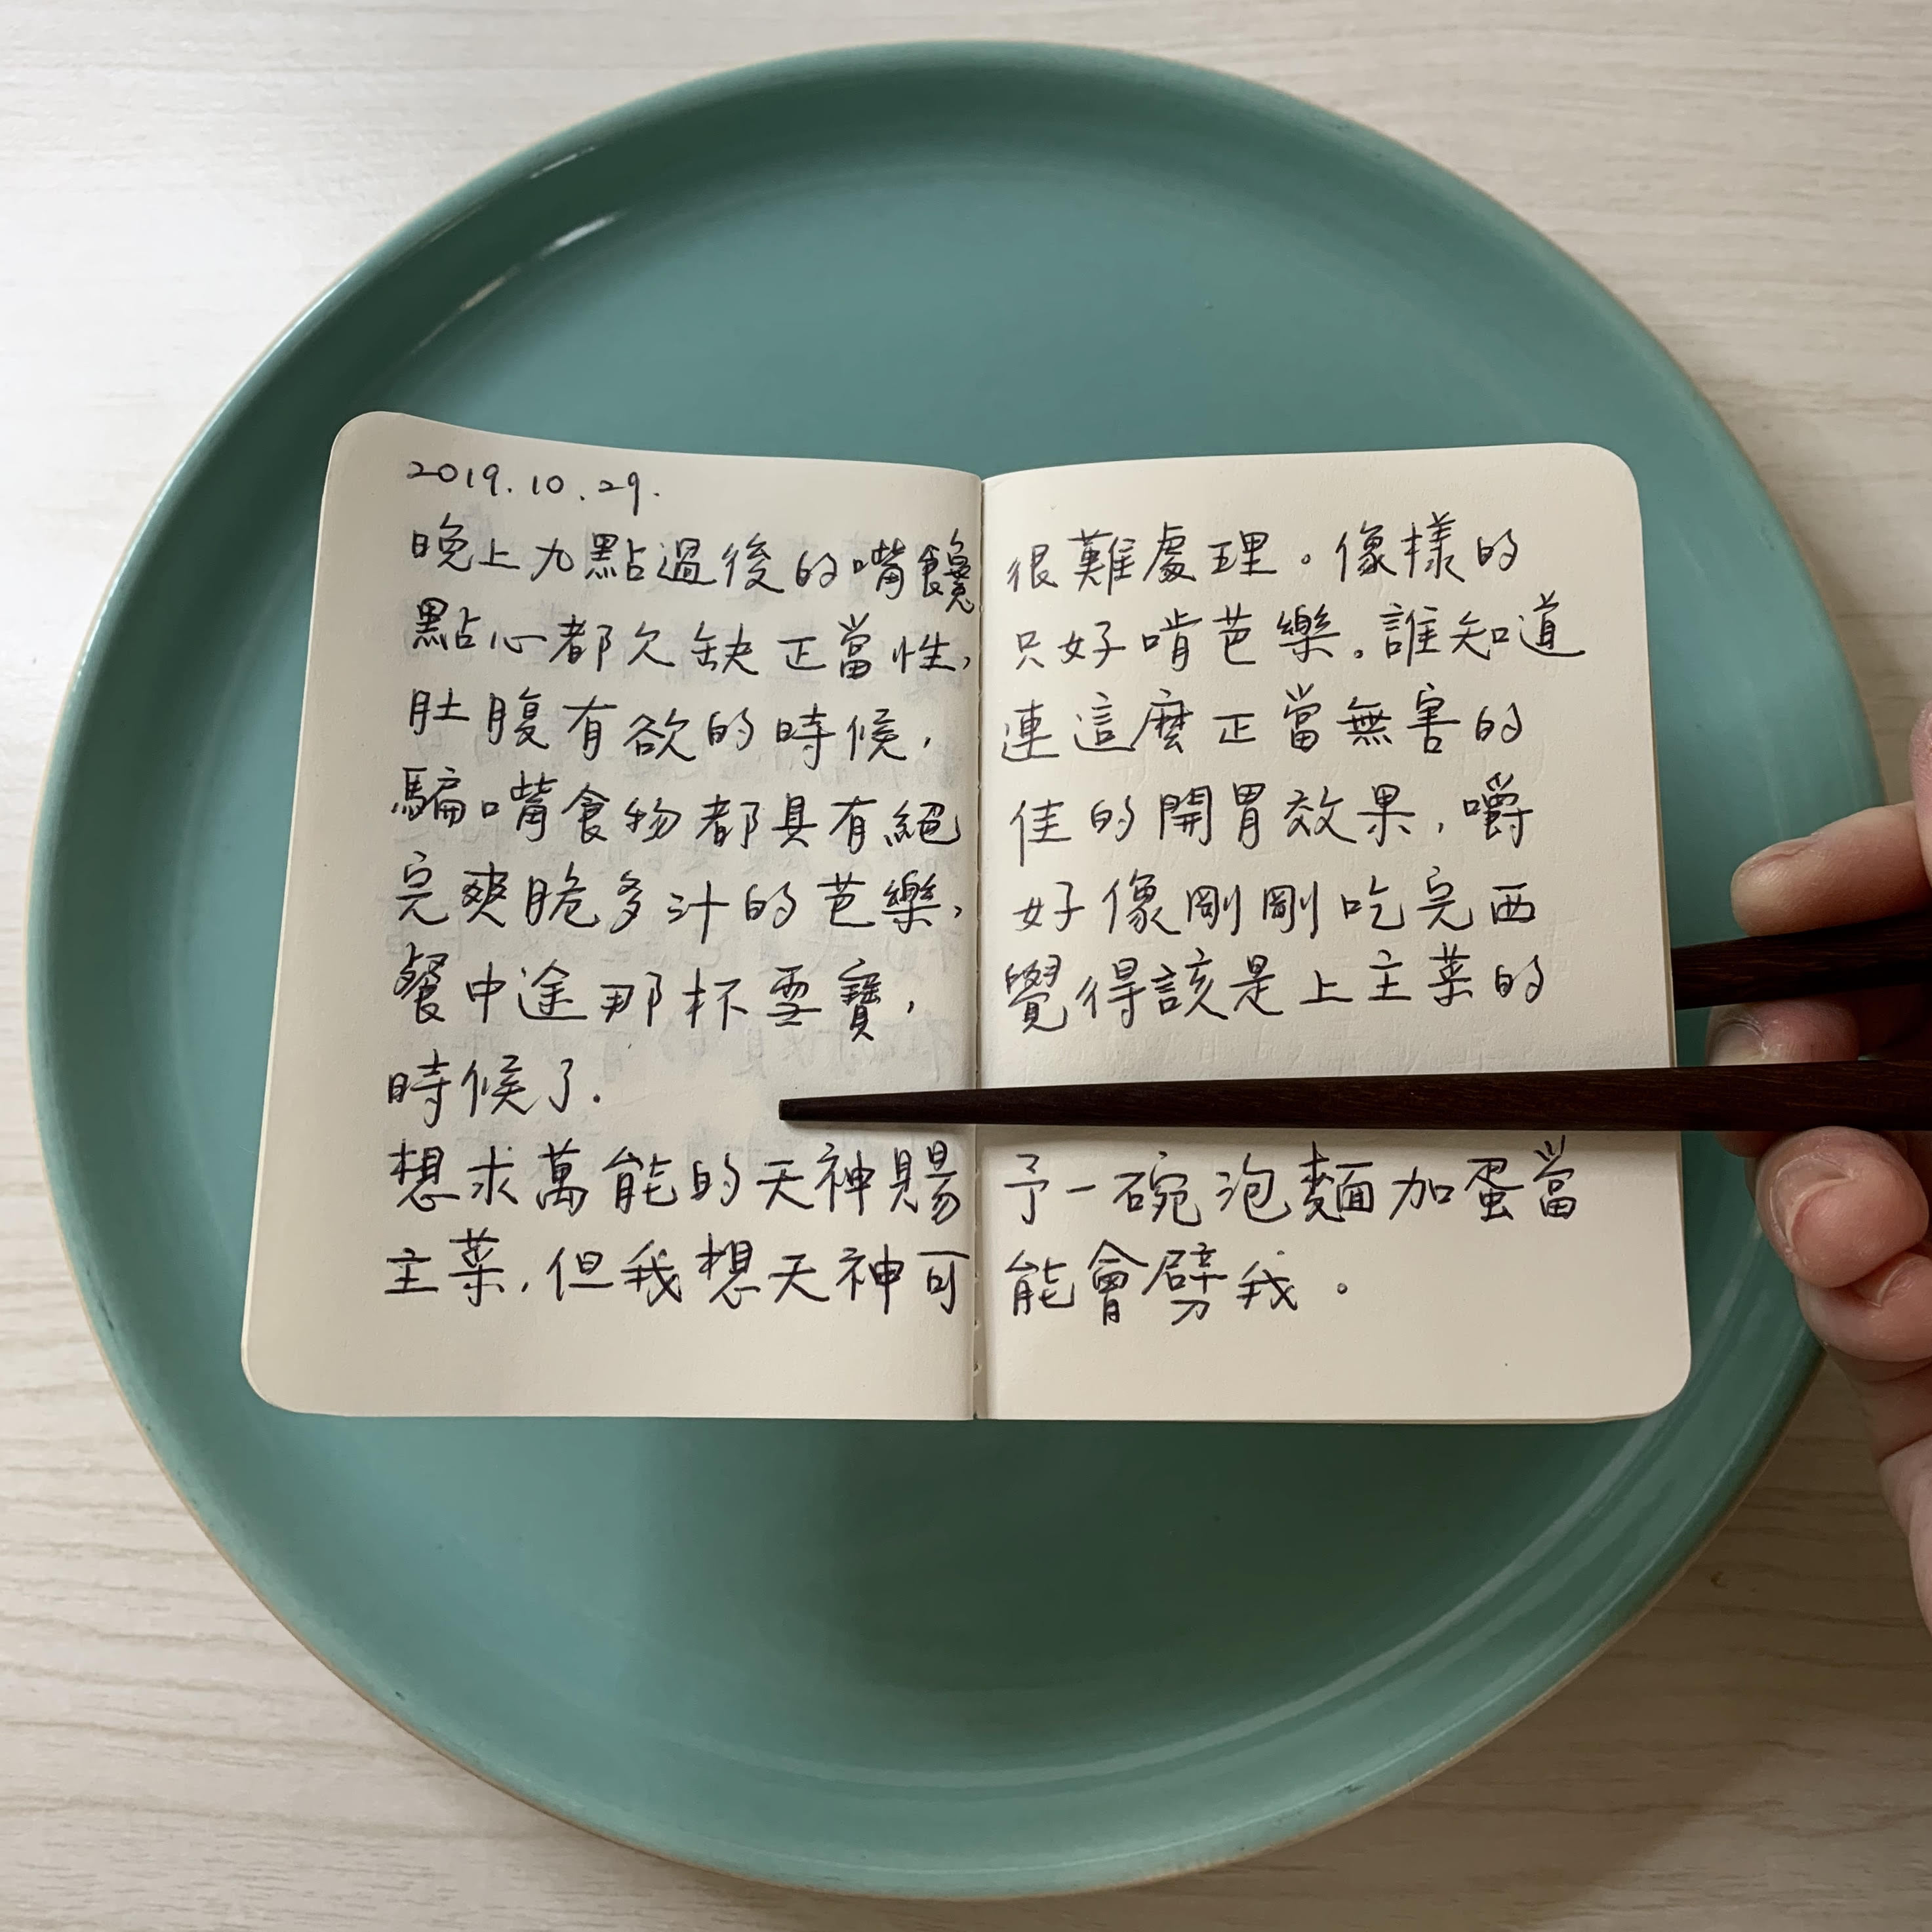 2019.10.29.
晚上九點過後的嘴饞很難處理。像樣的
點心都欠缺正當性,只好啃芭樂。誰知道
肚腹有欲的時候,連這麼正當無害的
騙嘴食物都具有絕佳的開胃效果,嚼
完爽脆多汁的芭樂,好像剛剛吃完西
餐中途那杯雪寶,覺得該是上主菜的
時候了.
想求萬能的天神賜予一碗泡麵加蛋當
主菜,但我想天神可能會劈我。